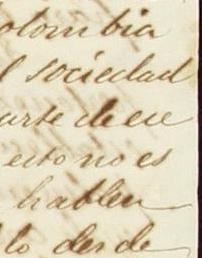 olombia
l sociedad
arte de ese
esto no es
hablen
lo desde